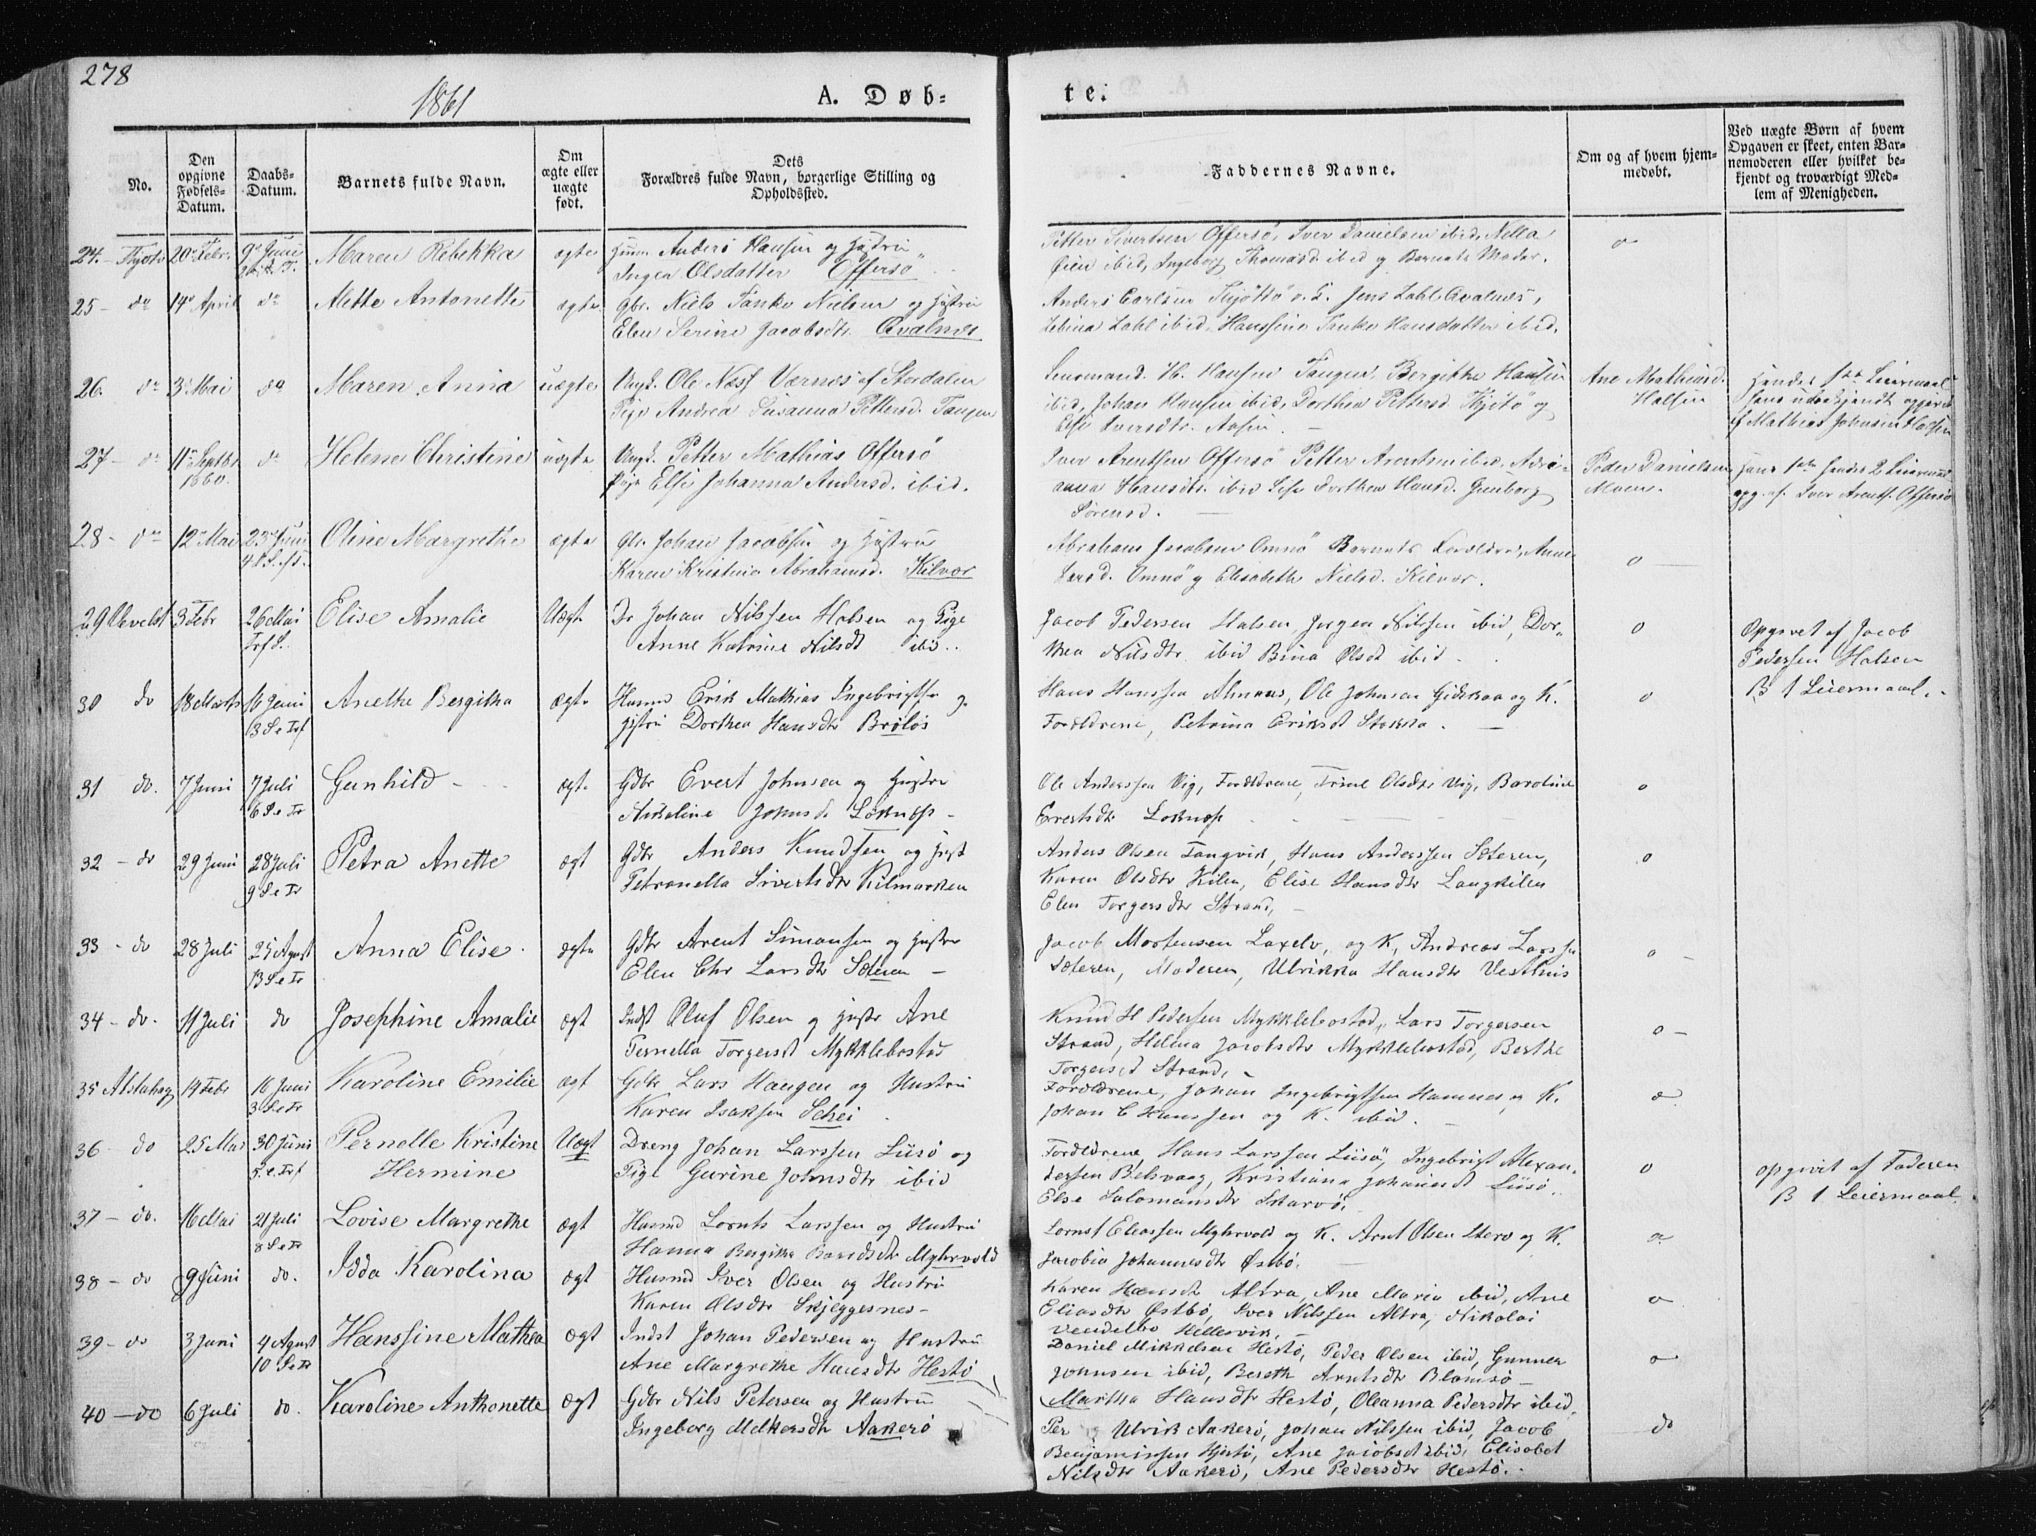 278
1861
A. Døb-
te.
No.
Den
opgivne
Fødsels-
Datum.
Daabs-
Datum.
Barnets fulde Navn.
Om
ægte eller
uægte
født.
Dets
Forældres fulde Navn, borgerlige Stilling og
Opholdssted.
Faddernes Navne.
Om og af hvem hjem-
medøbt.
Ved uægte Børn af hvem
Opgaven er skeet, enten Bar-
nemoderen eller hvilket be-
kjendt og troværdigt Med-
lem af Menigheden.
24. 20 Febr. 9 Juni Maren Rebekka ægte Anders Hansen og Hustru
Olsdatter Offersø
Petter Sivertsen Offersø, Iver Danielsen ibid, Nella
Øien ibid, Ingeborg Thomasd ibid og Barnets Moder. o
25 - do 14 April do Mette Antonette ægte Gbr. Niels Tanke Nielsen og Hustru
Elen Serine Jacobsdt. Qvalnes
Anders Carlsen Jens Zahl Qvalnes,
Zahl ibid, Hanssine Tanke Hansdatter ibid.
26. do 3 Mai do Maren Anna uægte Ungk. Ole Næss Værnes af Stordalen
Pige Andrea Susanna Pettersd. Tangen
Lensmand H. Hansen Tangen, Bergitte Hansen
ibid, Johan Hansen ibid, Dorthea Pettersd og
Else Iversdtr. Aasen.
Ane Mathiasd.
Halsen
Mathias Johnsen Halsen
27 - do 11 Septbr 1860. do Helene Christine uægte Ungk. Petter Mathias Offersø
Pige Else Johanna Andersd. ibid.
Iver Arentsen Offersø Petter Arentsen ibid, Adri-
anna Hansdtr. ibid Dorthea Hansd.
Sørensd.
Peder Danielsen
Moen.
opg. af Iver Arents. Offersø
28 - do 12 Mai 23 Juni Oline Margrethe ægte Gbr. Johan Jacobsen og Hustru
Karen Kristina Abrahamsd. Kilvær
Abraham Jacobsen Omnø Barnets Forældre, Anne
Larsd. Omnø og Elisabeth Nielsd. Kilvær. o
29 Vevelst 3 Febr 26 Mai Elise Amalie Uægt Johan Nilssen Halsen og Pige
Trf S. Anne Katrine Nilsdt ibd..
Jacob Pedersen Halsen Jørgen Nilssen ibid, Dor-
thea Nilsdtr ibid Bina Olsdt ibid o
Opgivet af Jacob
Pedersen Halsen
B 1 Leiermaal.
30 do 18 Marts 16 Juni Anethe Bergitha ægte Husmd Erik Mathias Ingebrigts. og
3 S e Trf Hustru Dorthea Hansdtr Brøløs
Hans Hanssen Almnes, Ole Johnsen Gidskaa og K.
Forældrene, Petrina Eriksdt Stokka. o
31 do. 7 Juni 7 Juli Gunhild ægte Gdbr Evert Johnsen og Hustru
6 S e Tr Anneline Johnsd Løknæs
Ole Anderssen Vig, Forældrene, Trine Olsdtr Vig, Baroline
Evertsdtr Loknæs o
32 - do 29 Juni 28 Juli Petra Anette ægt Gdbr Anders Knudssen og Hust
9 S e Tr Petronella Sivertsdtr Kilmarken
Anders Olsen Tangvik, Hans Anderssen Sæteren,
Karen Olsdtr Kilen, Elise Hansdtr Langkilen
Elen Torgersdtr Strand, o
33 - do 28 Juli 25 August Anna Elise ægte Gdbr Arent Simonsen og Hustru
13 S e Tr Elen Chr Larsdtr Sæteren
Jacob Mortensen Laxelv, og K, Andreas Larssen
Sæteren, Moderen, Ulrikka Hansdtr Vesthuis o
34 - do. 11 Juli do Josephine Amalie ægt Indst Oluf Olsen og Hustr Ane
Pernella Torgersdt Mykklebostad
Knud H Pedersen Mykklebostad, Lars Torgersen
Strand, Helena Jacobsdtr Mykklebostad, Berthe
Torgersd Strand, o
35 Alstahoug 14 Febr 16 Juni Karoline Emilie ægt Gdbr Lars Haugen og Hustru
3 S e Tr Karen Isaksen Schei
Forældrene, Johan Ingebrigtsen Hamnes og K.
Johan C Hanssen og K. ibid. o
36 - do 25 Mai 30 Juni Pernelle Kristine Uægt Dreng Johan Larssen Liisø og
5. e. Trf Hermine Pige Gurine Johnsdtr ibid
Forældrene, Hans Larssen Liisø, Ingebrigt Alexan-
dersen Belsvaag, Kristiana Johansdt Liisø.
Else Salomonsdtr Skarvø. o
opgivet af Faderen
B 1 Leiermaal.
37 - do. 16 Mai 21 Juli Lovise Margrethe ægt Husmd Lornts Larssen og Hustru
8 S e Tr Hanna Bergitha Baredsdtr Myhrvold
Lornst Eliassen Myhrvold og K. Arnt Olsen og K.
Jacobia Johannesdtr Østbø. o
38 - do 9 Juni do. Idda Karolina ægt Husmd Iver Olsen og Hustru
Karen Olsdtr Skjeggesnes
Karen Hansdt Altra, Ane Maria ibid, Ane
Eliasdtr Østbø, Iver Nilssen Altra, Nikolai
Vendelbo Hellesvik. o
39 - do 3 Juni 4 August Hanssine Mathea ægt Indst Johan Pedersen og Hustru
10 S e Tr Ane Margrethe Hansdtr Hestø
Daniel Mikkelsen Hestø, Peder Olsen ibid, Gunner
Johnsen ibid, Bereth Arntsdtr Blomsø o
40 - do 6 Juli do. Karoline Anthonette ægt Gdbr Nils Petersen og Hustru
Ingeborg Melkersdtr Aakerø
Martha Hansdtr Hestø, Oleanna Pedersdtr ibid,
Per Ulrik Aakerø, Johan Nilssen ibid, Jacob
Benjaminssen Hestø, Ane Jacobsdt ibid, Elisabet
Nilsdtr Aakerø, Ane Pedersdtr Hestø. do